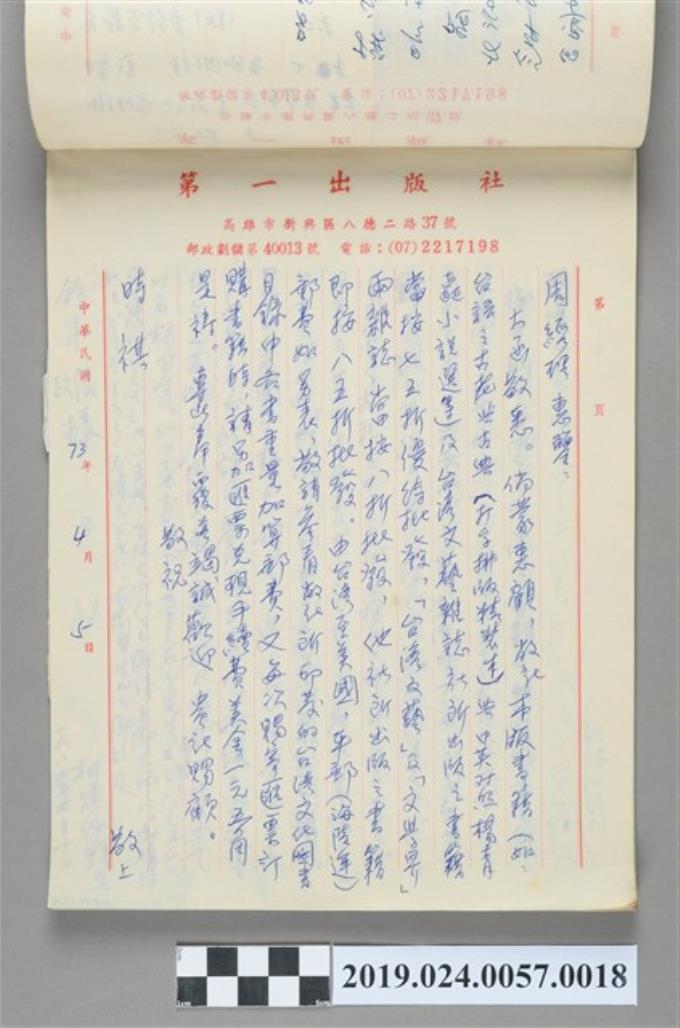 第一出版社
高雄市新興區八德二路37號
郵政劃儲第40013號 電話:(07)2217198
第 頁
周經理惠鑒:
大函敬悉。倘蒙惠顧,敝社本版書籍(如:
台語之古老與古典(打字排版精裝)與英对照楊青
矗小說選及台湾文藝雜誌社所出版之書籍
當按七五折優待批發,「台湾文藝」及「文學界」
兩雜誌當按八折批發,他社所出版之書籍
即按八五折批發。由台湾至美國,平郵(海陸運)
郵費如另表,敬請參看敝社所印發的台湾文化圖書
目錄中各書重量加算郵費,又每次賜寄匯票訂
購書籍時,請另加匯票兌現手續費美金一元五角
是祷。專此奉覆并竭誠歡迎 貴社賜顧。
敬祝
時祺
敬上
中華民國73年4月5日
2019.024.0057.0018